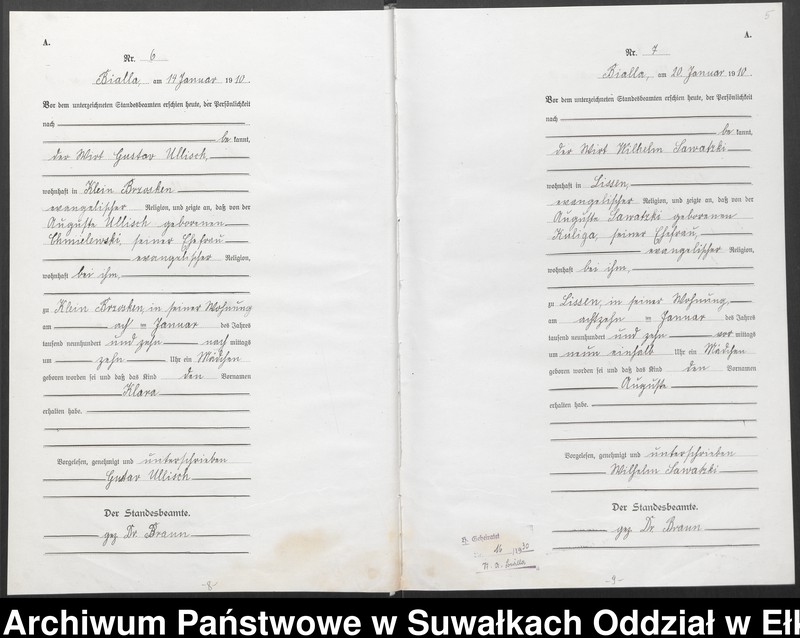 A.
Nr. 6
Bialla, am 14 Januar 1910.
Vor dem unterzeichneten Standesbeamten erschien heute, der Persönlichkeit
nach
be kannt,
der Wirt Gustav Ullisch,
wohnhaft in Klein Brzosken
evangelischer Religion, und zeigte an, daß von der
Auguste Ullisch geborenen
Chmielewski, seiner Ehefrau
evangelischer Religion,
wohnhaft bei ihm,
zu Klein Brzosken, in seiner Wohnung
am acht en Januar des Jahres
tausend neunhundert und zehn nach mittags
um zehn Uhr ein Mädchen
geboren worden sei und daß das Kind den Vornamen
Klara
erhalten habe.
Vorgelesen, genehmigt und unterschrieben
Gustav Ullisch
Der Standesbeamte.
gez Dr. Braun
-8-
5
A.
Nr. 7
Bialla, am 20 Januar 1910.
Vor dem unterzeichneten Standesbeamten erschien heute, der Persönlichkeit
nach
be kannt,
der Wirt Wilhelm Sawatzki
wohnhaft in Lissen,
evangelischer Religion, und zeigte an, daß von der
Auguste Sawatzki geborenen
Kaliga, seiner Ehefrau,
evangelischer Religion,
wohnhaft bei ihm,
zu Lissen, in seiner Wohnung,
am achtzehn en Januar des Jahres
tausend neunhundert und zehn vor mittags
um neun einhalb Uhr ein Mädchen
geboren worden sei und daß das Kind den Vornamen
Auguste
erhalten habe.
Vorgelesen, genehmigt und unterschrieben
Wilhelm Sawatzki
Der Standesbeamte.
gez Dr. Braun
Geheiratet
16 1930
-9-
Archiwum Państwowe w Suwałkach Oddział w Eł